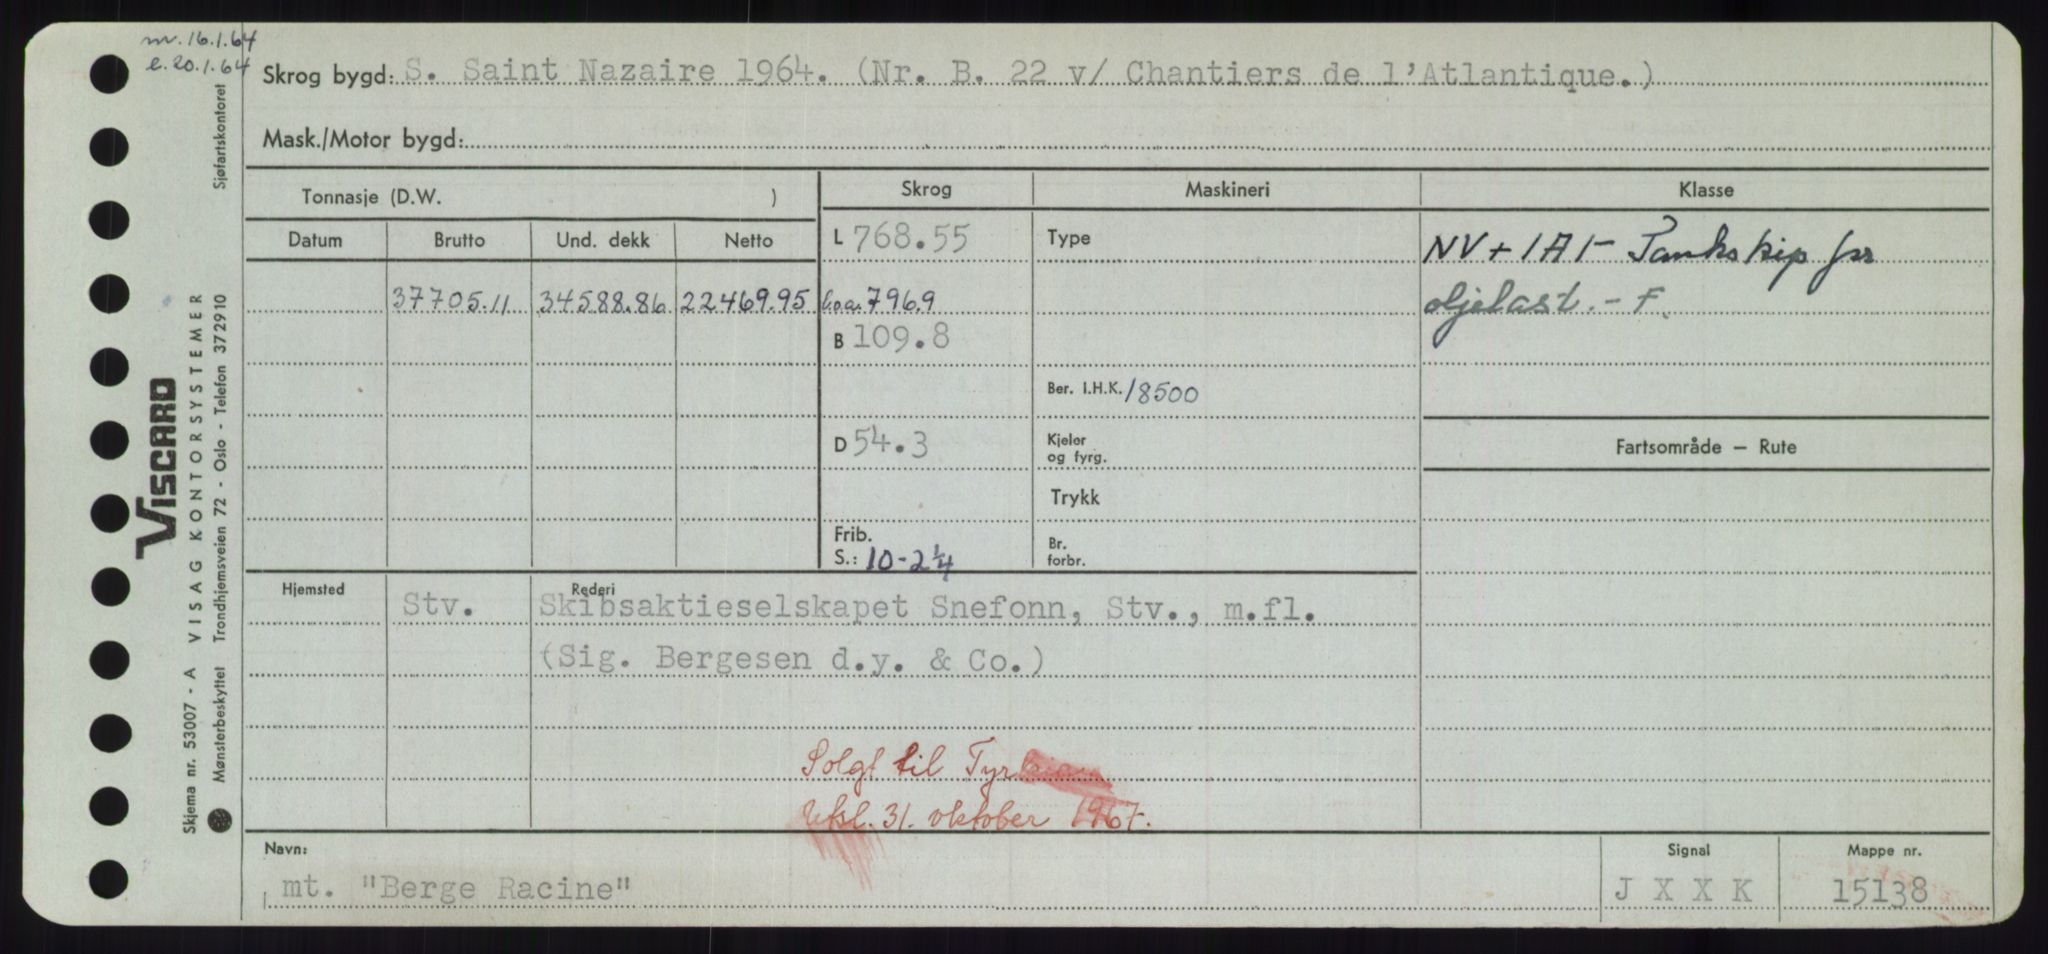 nr. 16.1.64
e. 20.1.64
Skrog bygd: S. Saint Nazaire 1964. (Nr. B. 22 v/ Chantiers de l'Atlantique.)
Mask./Motor bygd:
Tonnasje (D.W. )
Skrog Maskineri Klasse
Datum Brutto Und. dekk Netto
L 768.55 Type NV + 1A1 - Tankskip for
37705.11 34588.86 22469.95 l.o.a. 796.9 oljelast. - F.
B 109.8
Ber. I.H.K. 18500
D 54.3 Kjeler
og fyrg.
Fartsområde — Rute
Trykk
Frib.
S.: 10-2¼
Br.
forbr.
Hjemsted Stv. Rederi Skibsaktieselskapet Snefonn, Stv., m.fl.
(Sig. Bergesen d.y. & Co.)
Solgt til Tyrkia
Utsl. 31. oktober 1967.
Navn: mt. "Berge Racine"
Signal J X X K
Mappe nr. 15138
VISCARD
Skjema nr. 53007 - A VISAG KONTORSYSTEMER
Mønsterbeskyttet Trondhjemsveien 72 - Oslo - Telefon 372910 Sjøfartskontoret